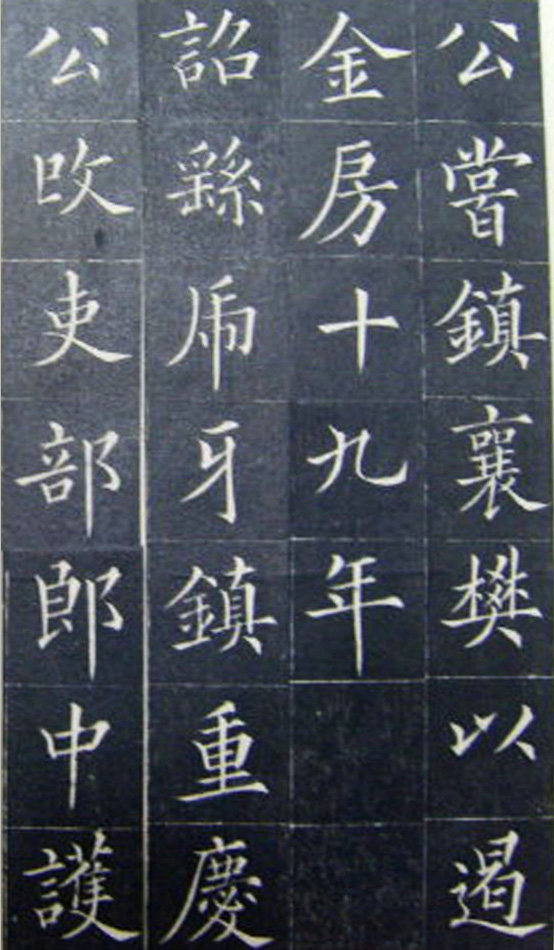 公嘗鎮襄樊以遏
金房十九年
詔繇乕牙鎮重慶
公改吏部郎中護